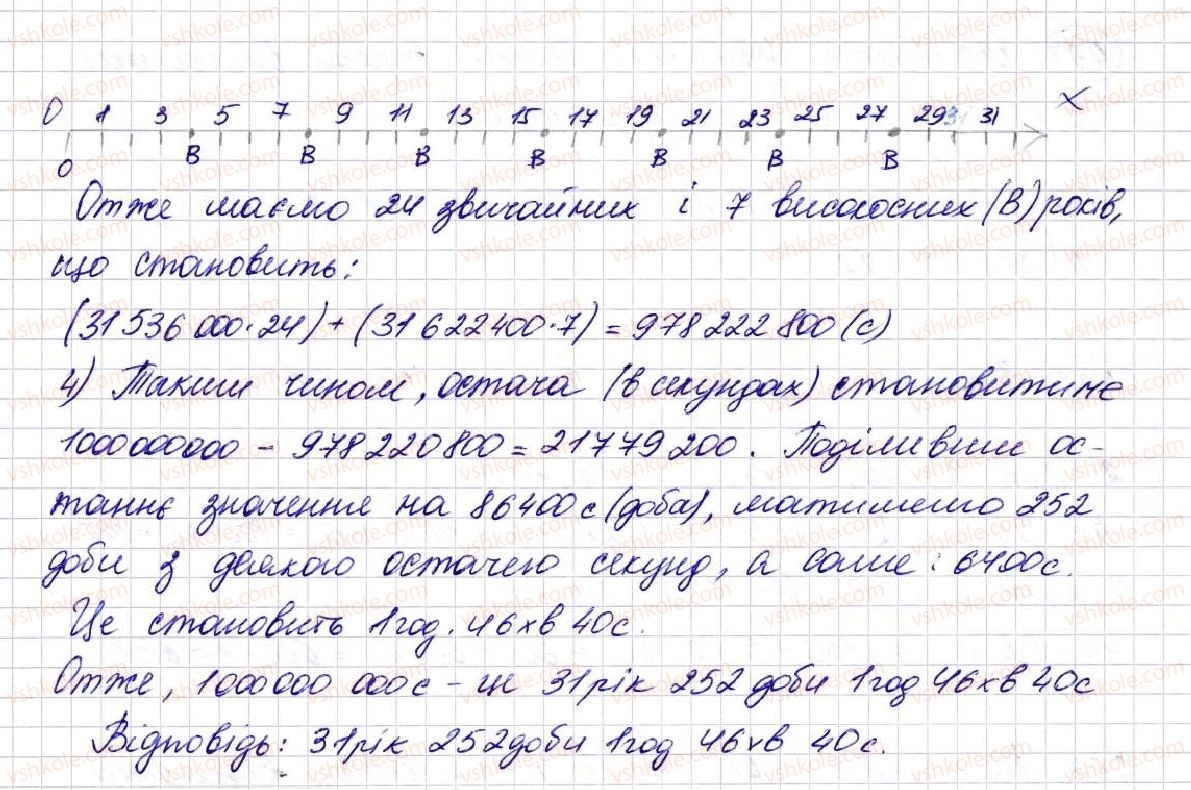 0 1 3 5 7 9 11 13 15 17 19 21 23 25 27 29 31 X
0 В В В В В В В
Отже маємо 24 звичайних і 7 високосних (В) років,
що становить:
(31 536 000·24) + (31 622 400·7) = 978 222 800 (с)
4) Таким чином, остача (в секундах) становитиме
1000000000 - 978 220 800 = 21 779 200. Поділивши ос-
таннє значення на 86400 с (доба), матимемо 252
доби з деякого остачею секунд, а саме: 6400 с.
Це становить 1 год. 46 хв 40 с.
Отже, 1000 000 000 с - це 31 рік 252 доби 1 год 46 хв 40 с
Відповідь: 31 рік 252 доби 1 год 46 хв 40 с.
vshkole.com